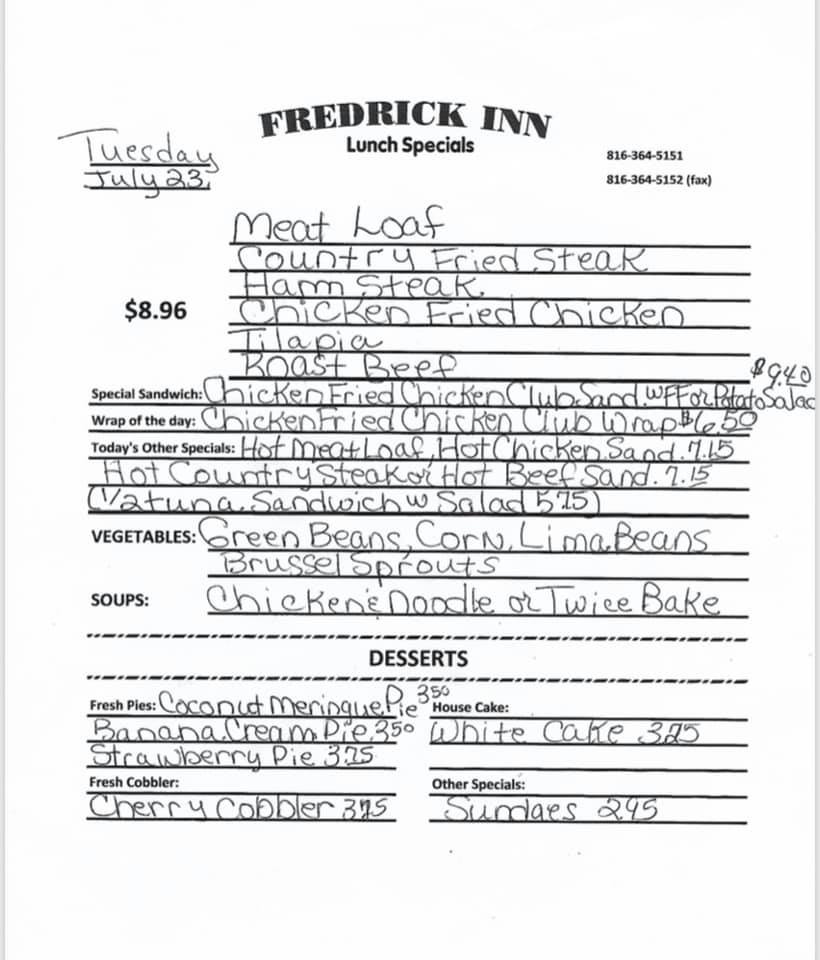 FREDRICK INN
Lunch Specials
816-364-5151
816-364-5152 (fax)
Tuesday
July 23,
Meat Loaf
Country Fried Steak
Ham Steak
$8.96
Chicken Fried Chicken
Tilapia
Roast Beef
$9.40
Special Sandwich: Chicken Fried Chicken Club Sand. w FF or Potato Salad
Wrap of the day: Chicken Fried Chicken Club Wrap $6.50
Today's Other Specials: Hot Meat Loaf, Hot Chicken Sand. 7.15
Hot Country Steak or Hot Beef Sand. 7.15
(1/2 tuna Sandwich w Salad 5.75)
VEGETABLES: Green Beans, Corn, Lima Beans
Brussel Sprouts
SOUPS: Chicken & Noodle or Twice Bake
DESSERTS
Fresh Pies: Coconut Meringue Pie 350
Banana Cream Pie 350
Strawberry Pie 375
House Cake:
White Cake 375
Fresh Cobbler:
Cherry Cobbler 375
Other Specials:
Sundaes 295